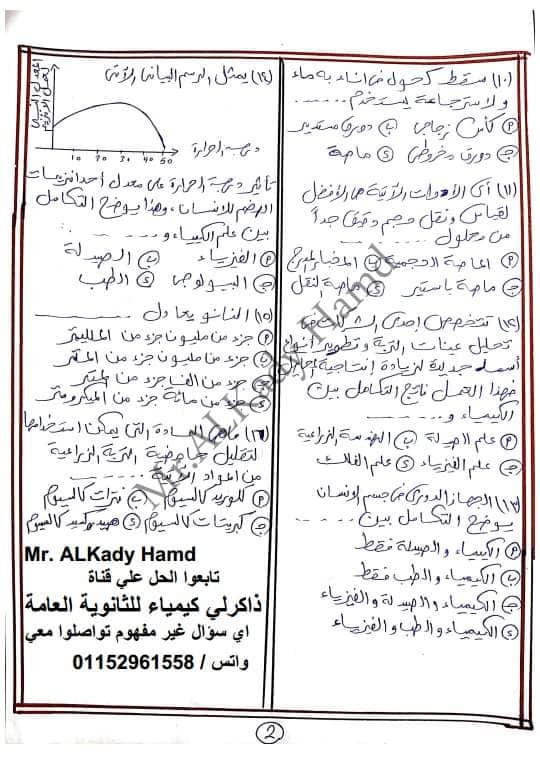 (١٠) سقط كحول فى اناء به ماء
ولاسترجاعة يستخدم ......
(٩) كأس زجاجى (ب) دورق مستدير
(ج) دورق مخروطى (د) ماصة
(١١) أى الأدوات الآتية هى الأفضل
لقياس ونقل حجم دقيق جداً
من محلول ......
(٩) الماصة الحجمية (ب) المخبار المدرج
(ج) ماصة باستير (د) ماصة لنقل
(١٢) تتخصص إحدى الشركات فى
تحليل عينات التربة وتطوير أنواع
أسمدة جديدة لزيادة إنتاجية
فهذا العمل ناتج التكامل بين
الكيمياء و ......
(٩) علم الصيدلة (ب) الهندسة الزراعية
(ج) علم الفيزياء (د) علم الفلك
(١٣) الجهاز الدورى فى جسم الإنسان
يوضح التكامل بين ......
(٩) الكيمياء والصيدلة فقط
(ب) الكيمياء والطب فقط
(ج) الكيمياء والصيدلة والفيزياء
(د) الكيمياء والطب والفيزياء
(١٤) يمثل الرسم البيانى الآتى
المعدل النسبى
لعمل الإنزيم
10 20 30 40 50
درجة الحرارة
تأثير درجة الحرارة على معدل أحد انزيمات
الهضم للانسان، وهذا يوضح التكامل
بين علم الكيمياء و ......
(٩) الفيزياء (ب) الصيدلة
(ج) البيولوجى (د) الطب
(١٥) النانو يعادل ......
(٩) جزء من مليون جزء من الملليمتر
(ب) جزء من مليون جزء من المتر
(ج) جزء من ألف جزء من المتر
(د) جزء من مائة جزء من الميكرومتر
(١٦) ماهى المادة التى يمكن استخدامها
لتقليل حامضية التربة الزراعية
من المواد الآتية ......
(٩) كلوريد كالسيوم (ب) نترات كالسيوم
(ج) كبريتات كالسيوم (د) هيدروكسيد كالسيوم
Mr. ALKady Hamd
تابعوا الحل علي قناة
ذاكرلي كيمياء للثانوية العامة
اي سؤال غير مفهوم تواصلوا معي
واتس / 01152961558
Mr. AL Kady Hamd
2